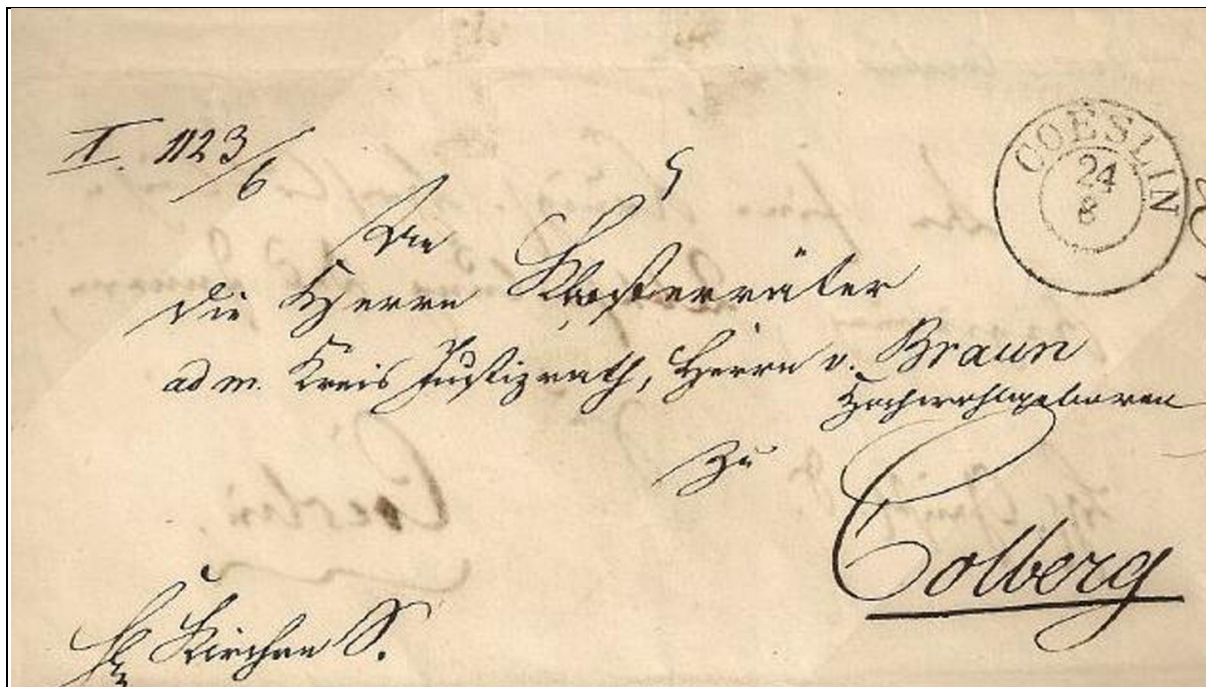 I. 1123/6
COESLIN
24
8
An
die Herrn Klosterväter
ad m. Kreis Justizrath, Herrn v. Braun
Hochwohlgeboren
zu
Colberg
Kirchen S.